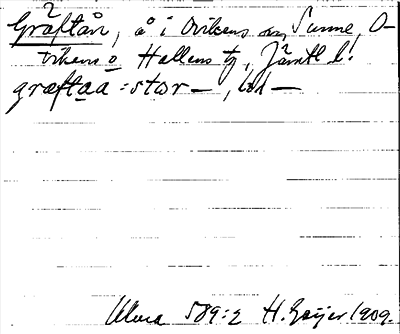 Gräftån, å i Ovikens o Sunne, O-
vikens o Hallens tg, Jämtl l!
græftaa : stor — , lill —
Ulma 589:2 H. Geijer 1909.